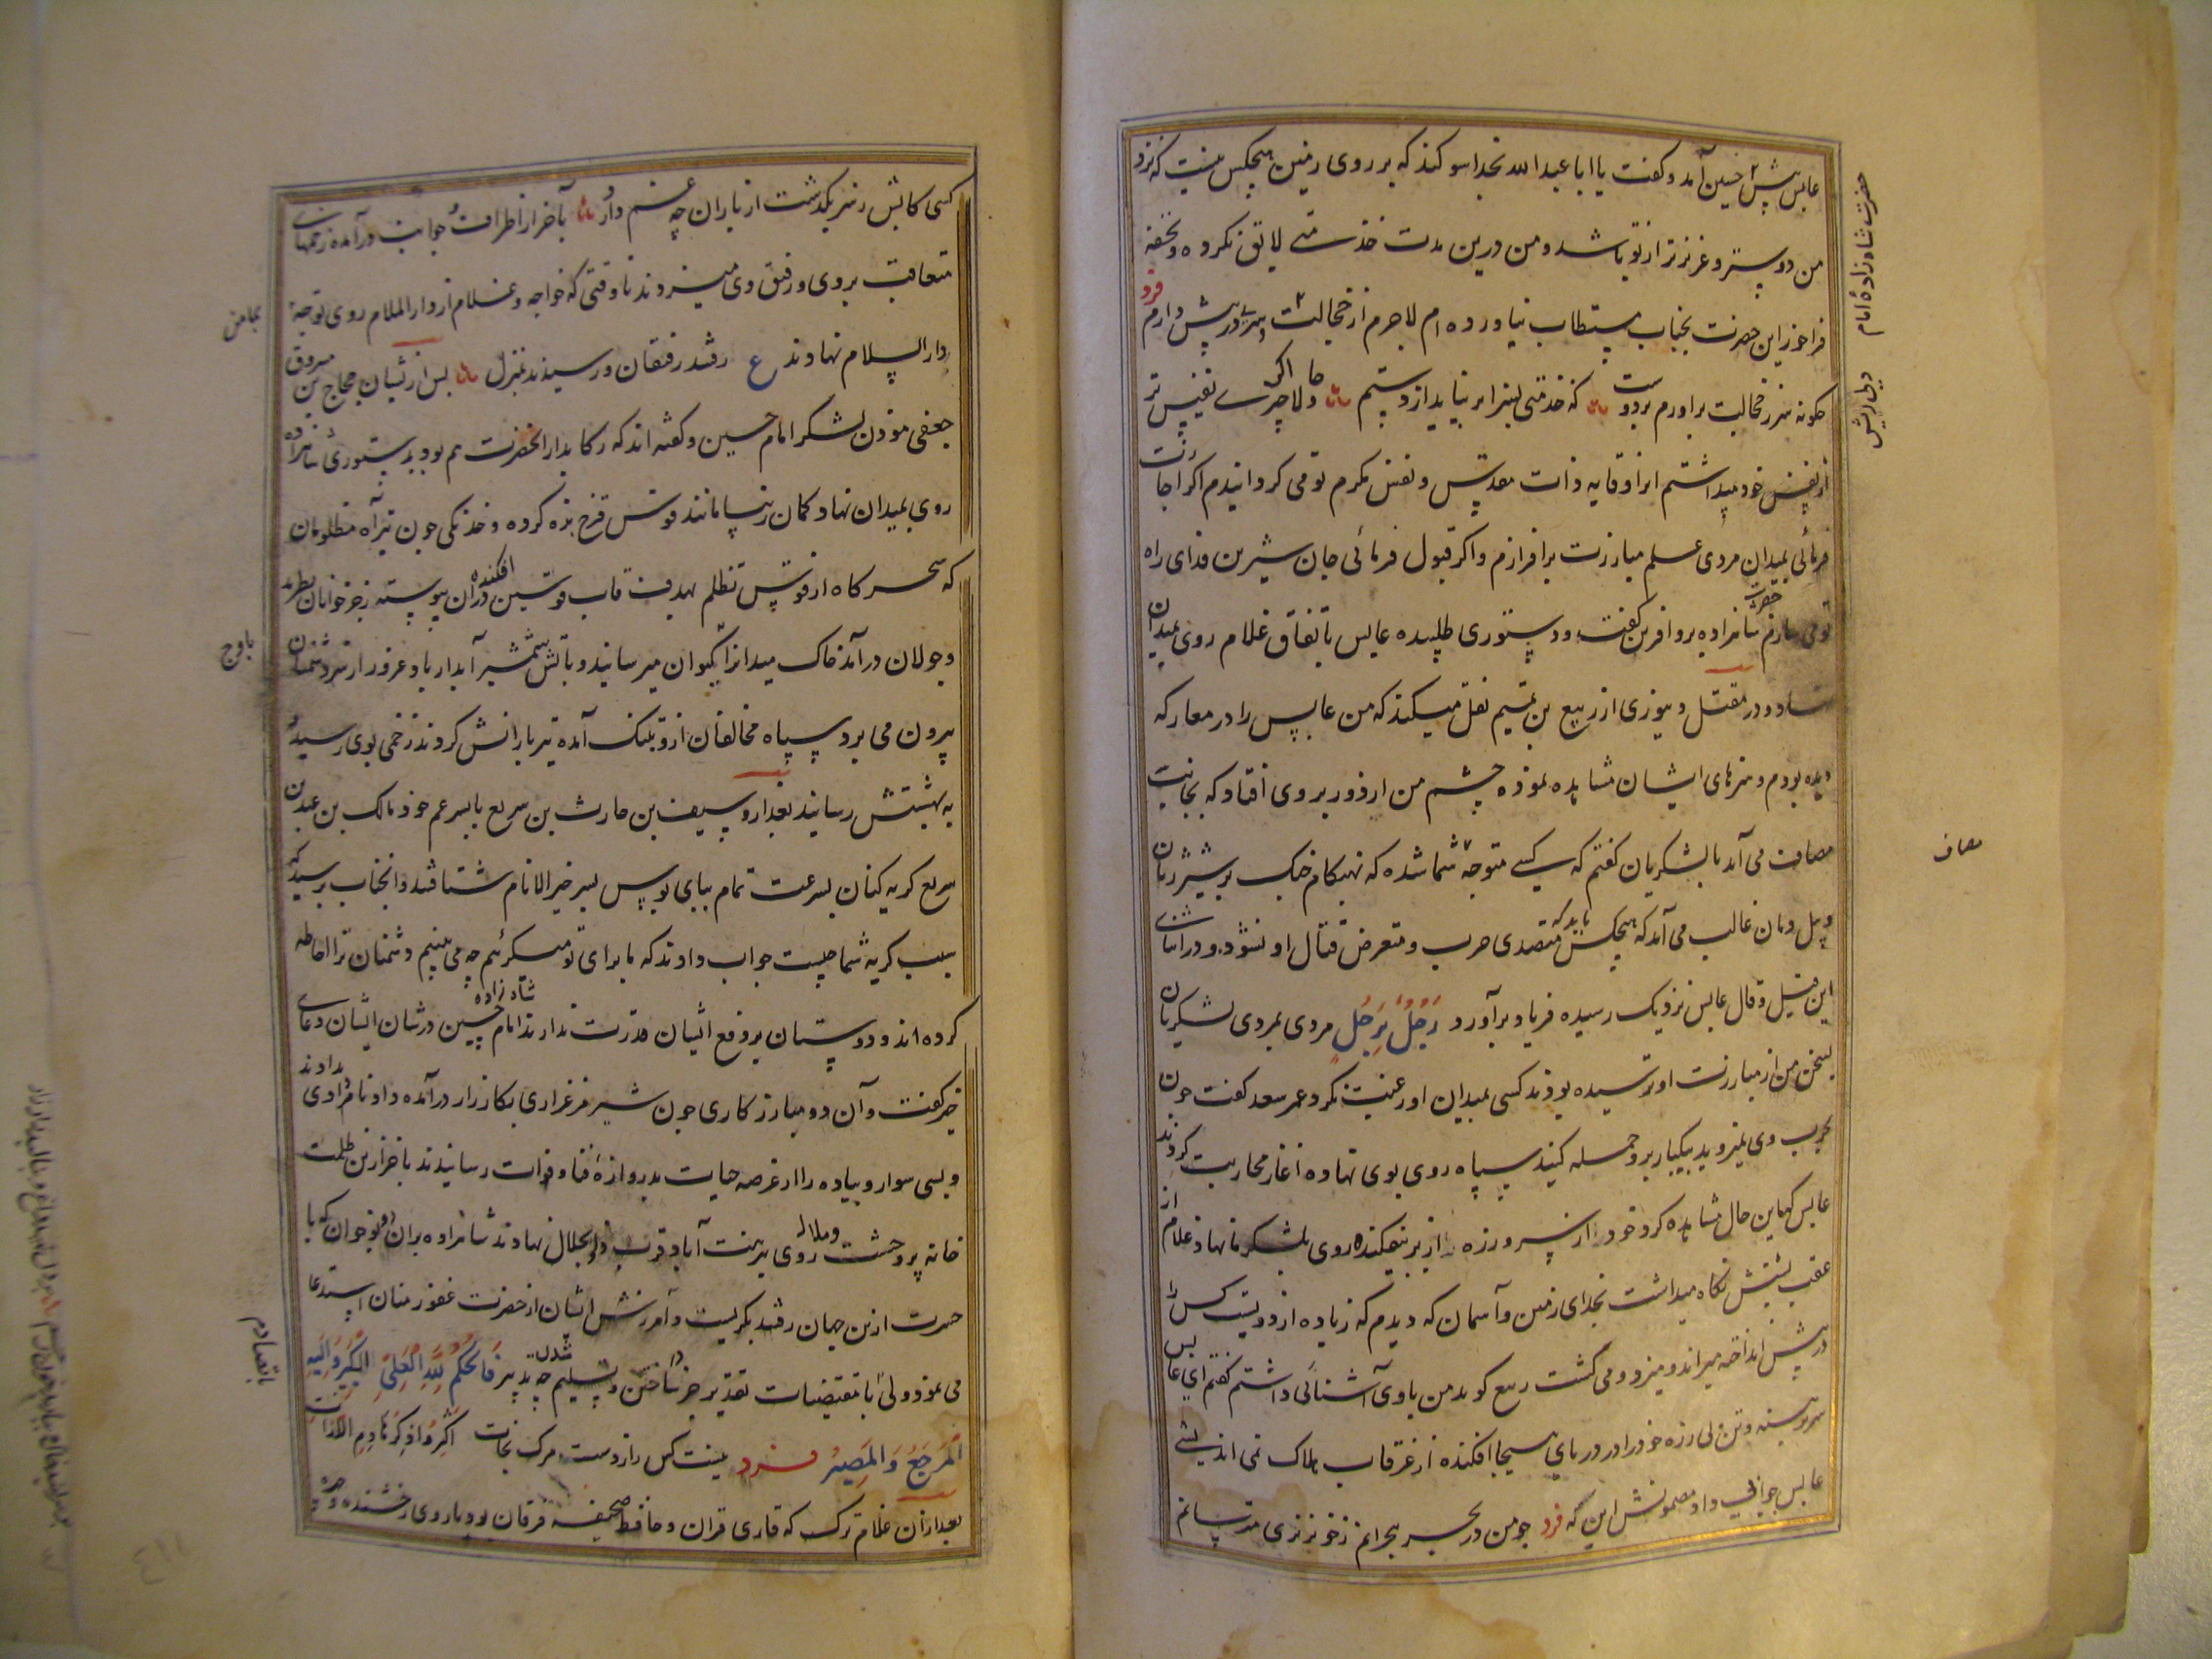 عابس پیش حسین آمد و کفت یا ابا عبدالله بخدا سوکند که بر روی زمین هیچکس نیست که نزد
من دوستر و عزیزتر از تو باشد و من درین مدت خذمتی لایق نکرده و تحفه
فراخور این حضرت بجناب مستطاب نیاورده ام لاجرم از خجالت سر در پیش دارم فرد
چکونه سر ز خجالت براورم بر دوست که خذمتی بسزا بر نیاید از دستم و لا اکر چیزی نفیس تر
از نفس خود میداشتم انرا وقایه ذات مقدس و نفس مکرم تو می کردانیدم اکر اجازت
فرمائی بمیدان مردی علم مبارزت برافرازم و اکر قبول فرمائی جان شیرین فدای راه
تو می سازم حضرت شاهزاده برو افرین کفت و دستوری طلبیده عابس باتفاق غلام روی بمیدان
نهاد و در مقتل دینوری از ربیع بن تمیم نقل میکند که من عابس را در معارکه
دیده بودم و هنرهای ایشان مشاهده نموده چشم من از دور بر وی افتاد که بجانب
مصاف می آمد با لشکریان کفتم که کسی متوجه شما شده که بهنکام جنک بر شیر ژیان
و پیل دمان غالب می آمد باید که هیچکس متصدی حرب و متعرض قتال او نشود و در اثنای
این قیل و قال عابس نزدیک رسیده فریاد برآورد رَجُلٌ بِرَجُلٍ مردی بمردی لشکریان
بسخن من از مبارزت او ترسیده بودند کسی بمیدان او رغبت نکرد عمر سعد کفت چون
بحرب وی نمیروید بیکبار برو حمله کنید سپاه روی بوی نهاده اغاز محاربت کردند
عابس که این حال مشاهده کرد خود از سر و زره از بر بیفکنده روی بلشکر نهاد و غلام از
عقب پشتش نکاه میداشت بخدای زمین و آسمان که دیدم که زیاده از دویست کس را
در پیش انداخته میراند و میزد و می کشت ربیع کوید من با وی آشنائی داشتم کفتم ای عابس
سر برهنه و تن بی زره خود را در دریای هیجا افکنده از غرقاب هلاک نمی اندیشی
عابس جوابی داد مضمونش این که فرد چو من در بحر هیجا از خونریزی
حضرت شاهزادهٔ امام
مصاف
کسی کابش ز سر بکذشت از باران چه غم دارد بآخر از اطراف و جوانب درآمده زخمهای
متعاقب بر وی و رفیق وی میزدند تا وقتی که خواجه و غلام از دار الملام روی توجه
بدار السلام نهادند ع رفتند رفیقان و رسیدند بمنزل پس از شان حجاج بن مسروق
جعفی موذن لشکر امام حسین و کفته اند که رکابدار الحضرت هم بود بدستوری شاهزاده
روی بمیدان نهاد و کمان مانند قوس قزح بزه کرده و خدنکی چون تیر آه مظلومان
که سحرکاه از قوس تظلم بهدف قاب قوسین افکنده در آن پیوسته رجز خوانان
و جولان درآمد خاک میدانرا بکیوان میرسانید و بآتش شمشیر آبدار باد غرور از سر دشمنان
بیرون می برد سپاه مخالفان ازو بتنک آمده تیر بارانش کردند زخمی بوی رسیده
به بهشتش رسانید بعد ازو سیف بن حارث بن سریع با پسر عم خود مالک بن عبد بن
سریع کریه کنان بسرعت تمام بپای بوس پسر خیر الانام شتافتند و انجناب پرسید که
سبب کریه شما چیست جواب دادند که ما برای تو میکرئیم چه می بینیم دشمنان ترا احاطه
کرده اند و دوستان بر دفع ایشان قدرت ندارند امام شاهزاده حسین در شان ایشان دعای
خیر کفت و آن دو مبارز کاری چون شیر مرغزاری بکارزار درآمده داد نامرادی بدادند
و بسی سوار و پیاده را از عرصه حیات بدروازهٔ فنا و فوات رسانیدند باخر ازین ظلمت
خانه پر وحشت و ملال روی بنزهت آباد قرب ذو الجلال نهادند شاهزاده بران دو نوجوان که با
حسرت ازین جهان رفتند بکریست و آمرزش ایشان از حضرت غفور منان استدعا
می نمود ولی با مقتضیات تقدیر جز ساختن و تسلیم شدن چه تدبیر فَالحُکمُ لِلّهِ العَلیِّ الکَبیرِ وَ اِلَیهِ
المَرجَعُ وَ المَصیر فرد نیست کس را از دست مرک نجات اَکثِرُوا ذِکرَ هادِمِ اللَّذات
بعد از ان غلام ترک که قاری قران و حافظ صحیفه فرقان بود با روی رخشنده
باوج